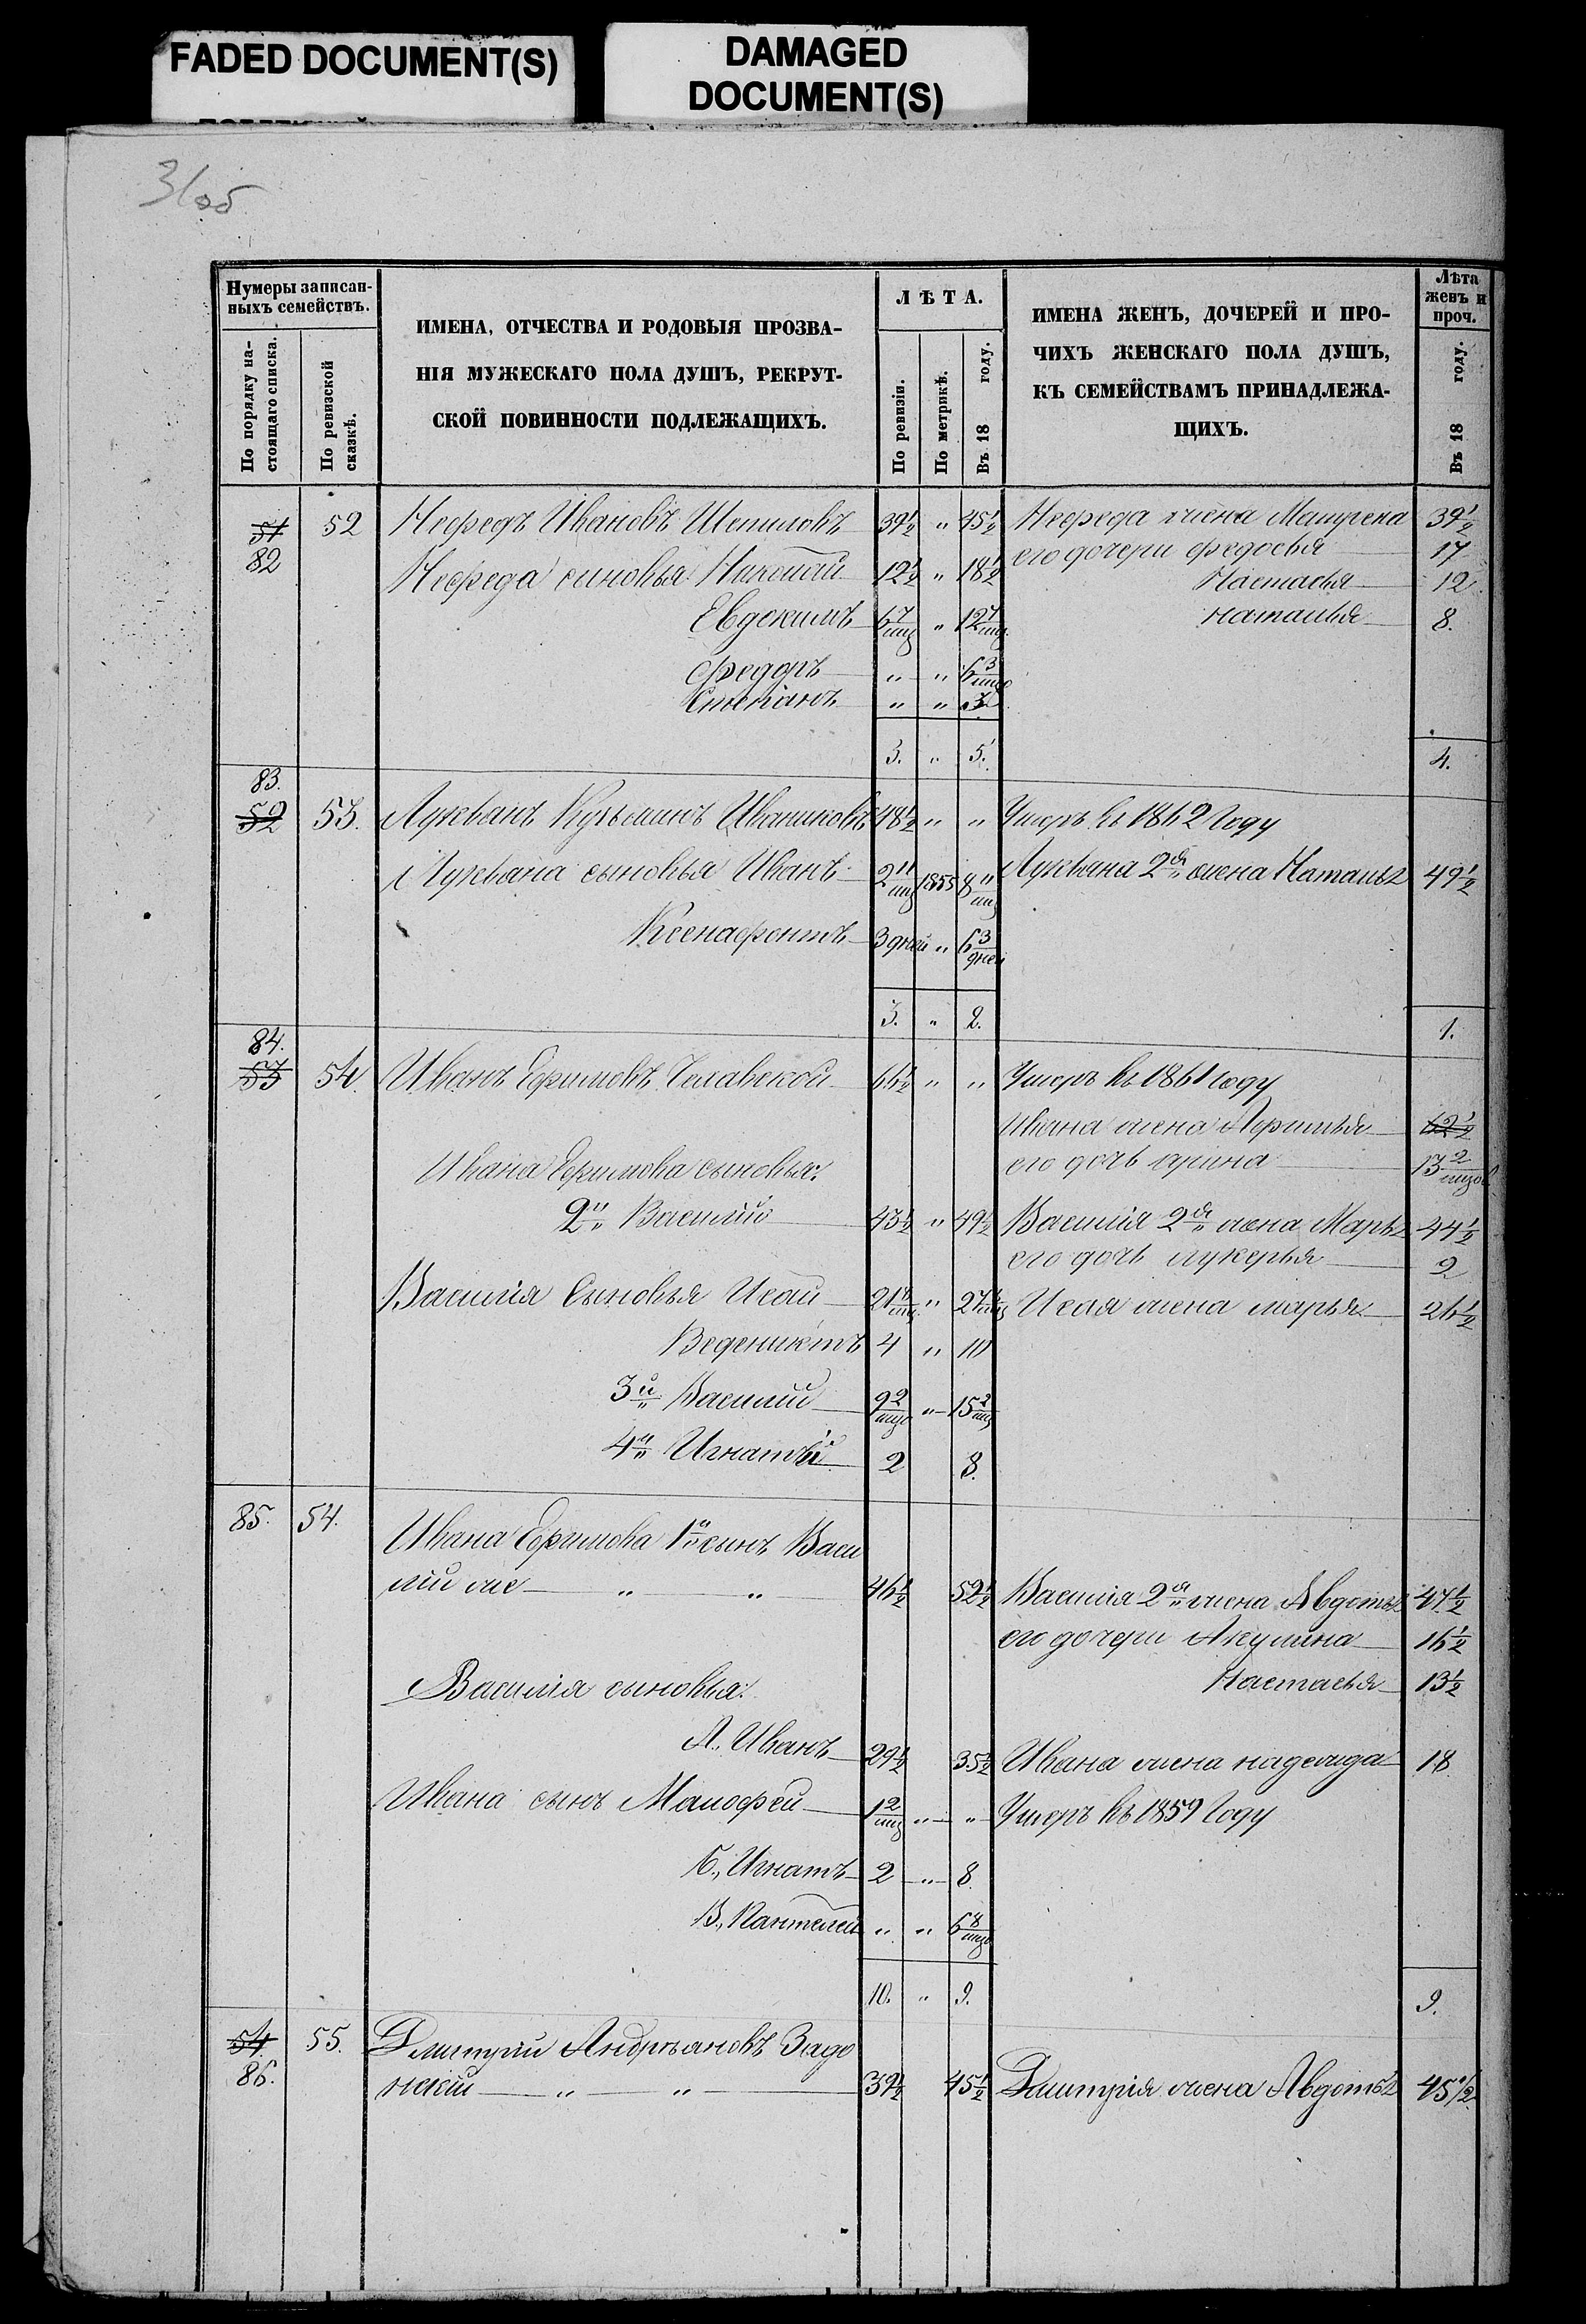 FADED DOCUMENT(S)
DAMAGED
DOCUMENT(S)
31об
Нумеры записан-
ныхъ семействъ.
По порядку на-
стоящаго списка.
По ревизской
сказкѣ.
ИМЕНА, ОТЧЕСТВА И РОДОВЫЯ ПРОЗВА-
НІЯ МУЖЕСКАГО ПОЛА ДУШЪ, РЕКРУТ-
СКОЙ ПОВИННОСТИ ПОДЛЕЖАЩИХЪ.
ЛѢТА.
По ревизіи.
По метрикѣ.
Въ 18 году.
ИМЕНА ЖЕНЪ, ДОЧЕРЕЙ И ПРО-
ЧИХЪ ЖЕНСКАГО ПОЛА ДУШЪ,
КЪ СЕМЕЙСТВАМЪ ПРИНАДЛЕЖА-
ЩИХЪ.
Лѣта
женъ и
проч.
Въ 18 году.
51 52 Нефедъ Ивановъ Шепиловъ 39½ " 45½ Нефеда жена Матрена 39½
82 его дочери федосья 17
Нефеда синовья Николай 12½ " 18½ Настасья 12
Евдокимъ 6 7/мц " 12 7/мц наталья 8.
Федоръ " " 6 3/мцо
Степанъ " " 3
3. " 5. 4.
83.
52 53. Лукьянъ Кузьминъ Иваниковъ 48½ " " Умеръ въ 1862 Году
Лукьяна сыновья Иванъ 2 11/мц 1855 8 11/мц Лукьяна 2я жена Наталья 49½
Ксенафонтъ 3 дней " 6 3/дней
3. " 2. 1.
84.
53 54. Иванъ Ефимовъ 66½ " " Умеръ въ 1861 году
Ивана жена 62½
Ивана Ефимова сыновья: его дочь арина 13 2/мцов
2й Василий 43½ " 49½ Василія 2я жена Марья 44½
его дочь лукерья 2
Василия Сыновья Исай " Исая жена марья 26½
Ведениктъ 4 " 10
3й Василий 9 2/мцо " 15 2/мц
4й Игнатий 2 8.
85. 54. Ивана Ефимова 1й сынъ Васи
лий же " " 46½ 52½ Василія 2я жена Авдотья 47½
его дочери Акулина 16½
Василия сыновья: Настасья 13½
А., Иванъ 29½ 35½ Ивана жена надежда 18
Ивана сынъ Малофей 1 2/мц " " Умеръ въ 1859 Году
Б., Игнатъ 2 " 8.
В., Пантелей " " 6 8/мцо
10. " 9. 9.
54. 55. Дмитрий Андрѣяновъ Задо
86. нский " " 39½ 45½ Дмитрія жена Авдотья 45 1/2